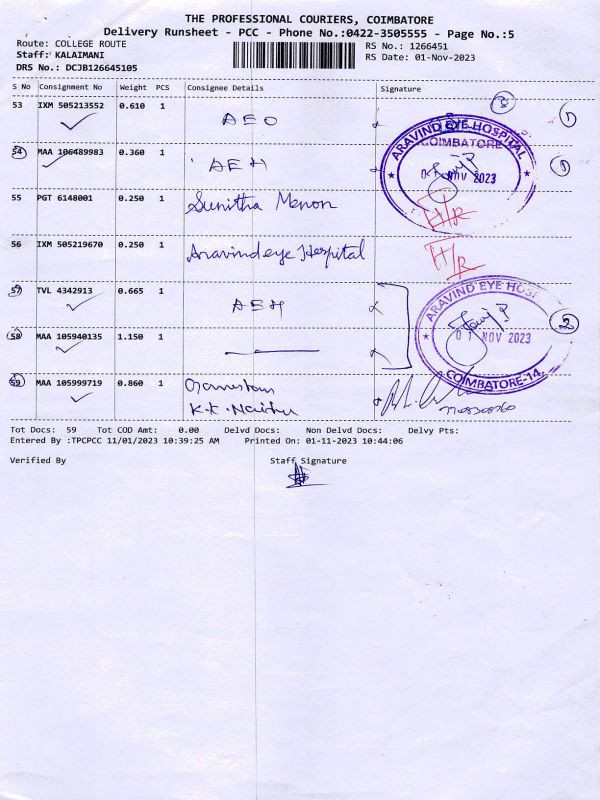 THE PROFESSIONAL COURIERS, COIMBATORE
Delivery Runsheet - PCC - Phone No.:0422-3505555 - Page No.:5
Route: COLLEGE ROUTE
RS No.: 1266451
Staff: KALAIMANI
RS Date: 01-Nov-2023
DRS No.: DCJB126645105
S No Consignment No Weight PCS Consignee Details Signature
53 IXM 505213552 0.610 1
AEO
ARAVIND EYE HOSPITAL
COIMBATORE
01 NOV 2023
54 MAA 106489983 0.360 1
AEH
55 PGT 6148001 0.250 1
Sunitha Menon
H/R
56 IXM 505219670 0.250 1
Aravind eye Hospital
H/R
57 TVL 4342913 0.665 1
AEH
ARAVIND EYE HOSPI
01 NOV 2023
COIMBATORE-14.
2
58 MAA 105940135 1.150 1
59 MAA 105999719 0.860 1
K.K. Naidu
Tot Docs: 59 Tot COD Amt: 0.00 Delvd Docs: Non Delvd Docs: Delvy Pts:
Entered By :TPCPCC 11/01/2023 10:39:25 AM Printed On: 01-11-2023 10:44:06
Verified By Staff Signature